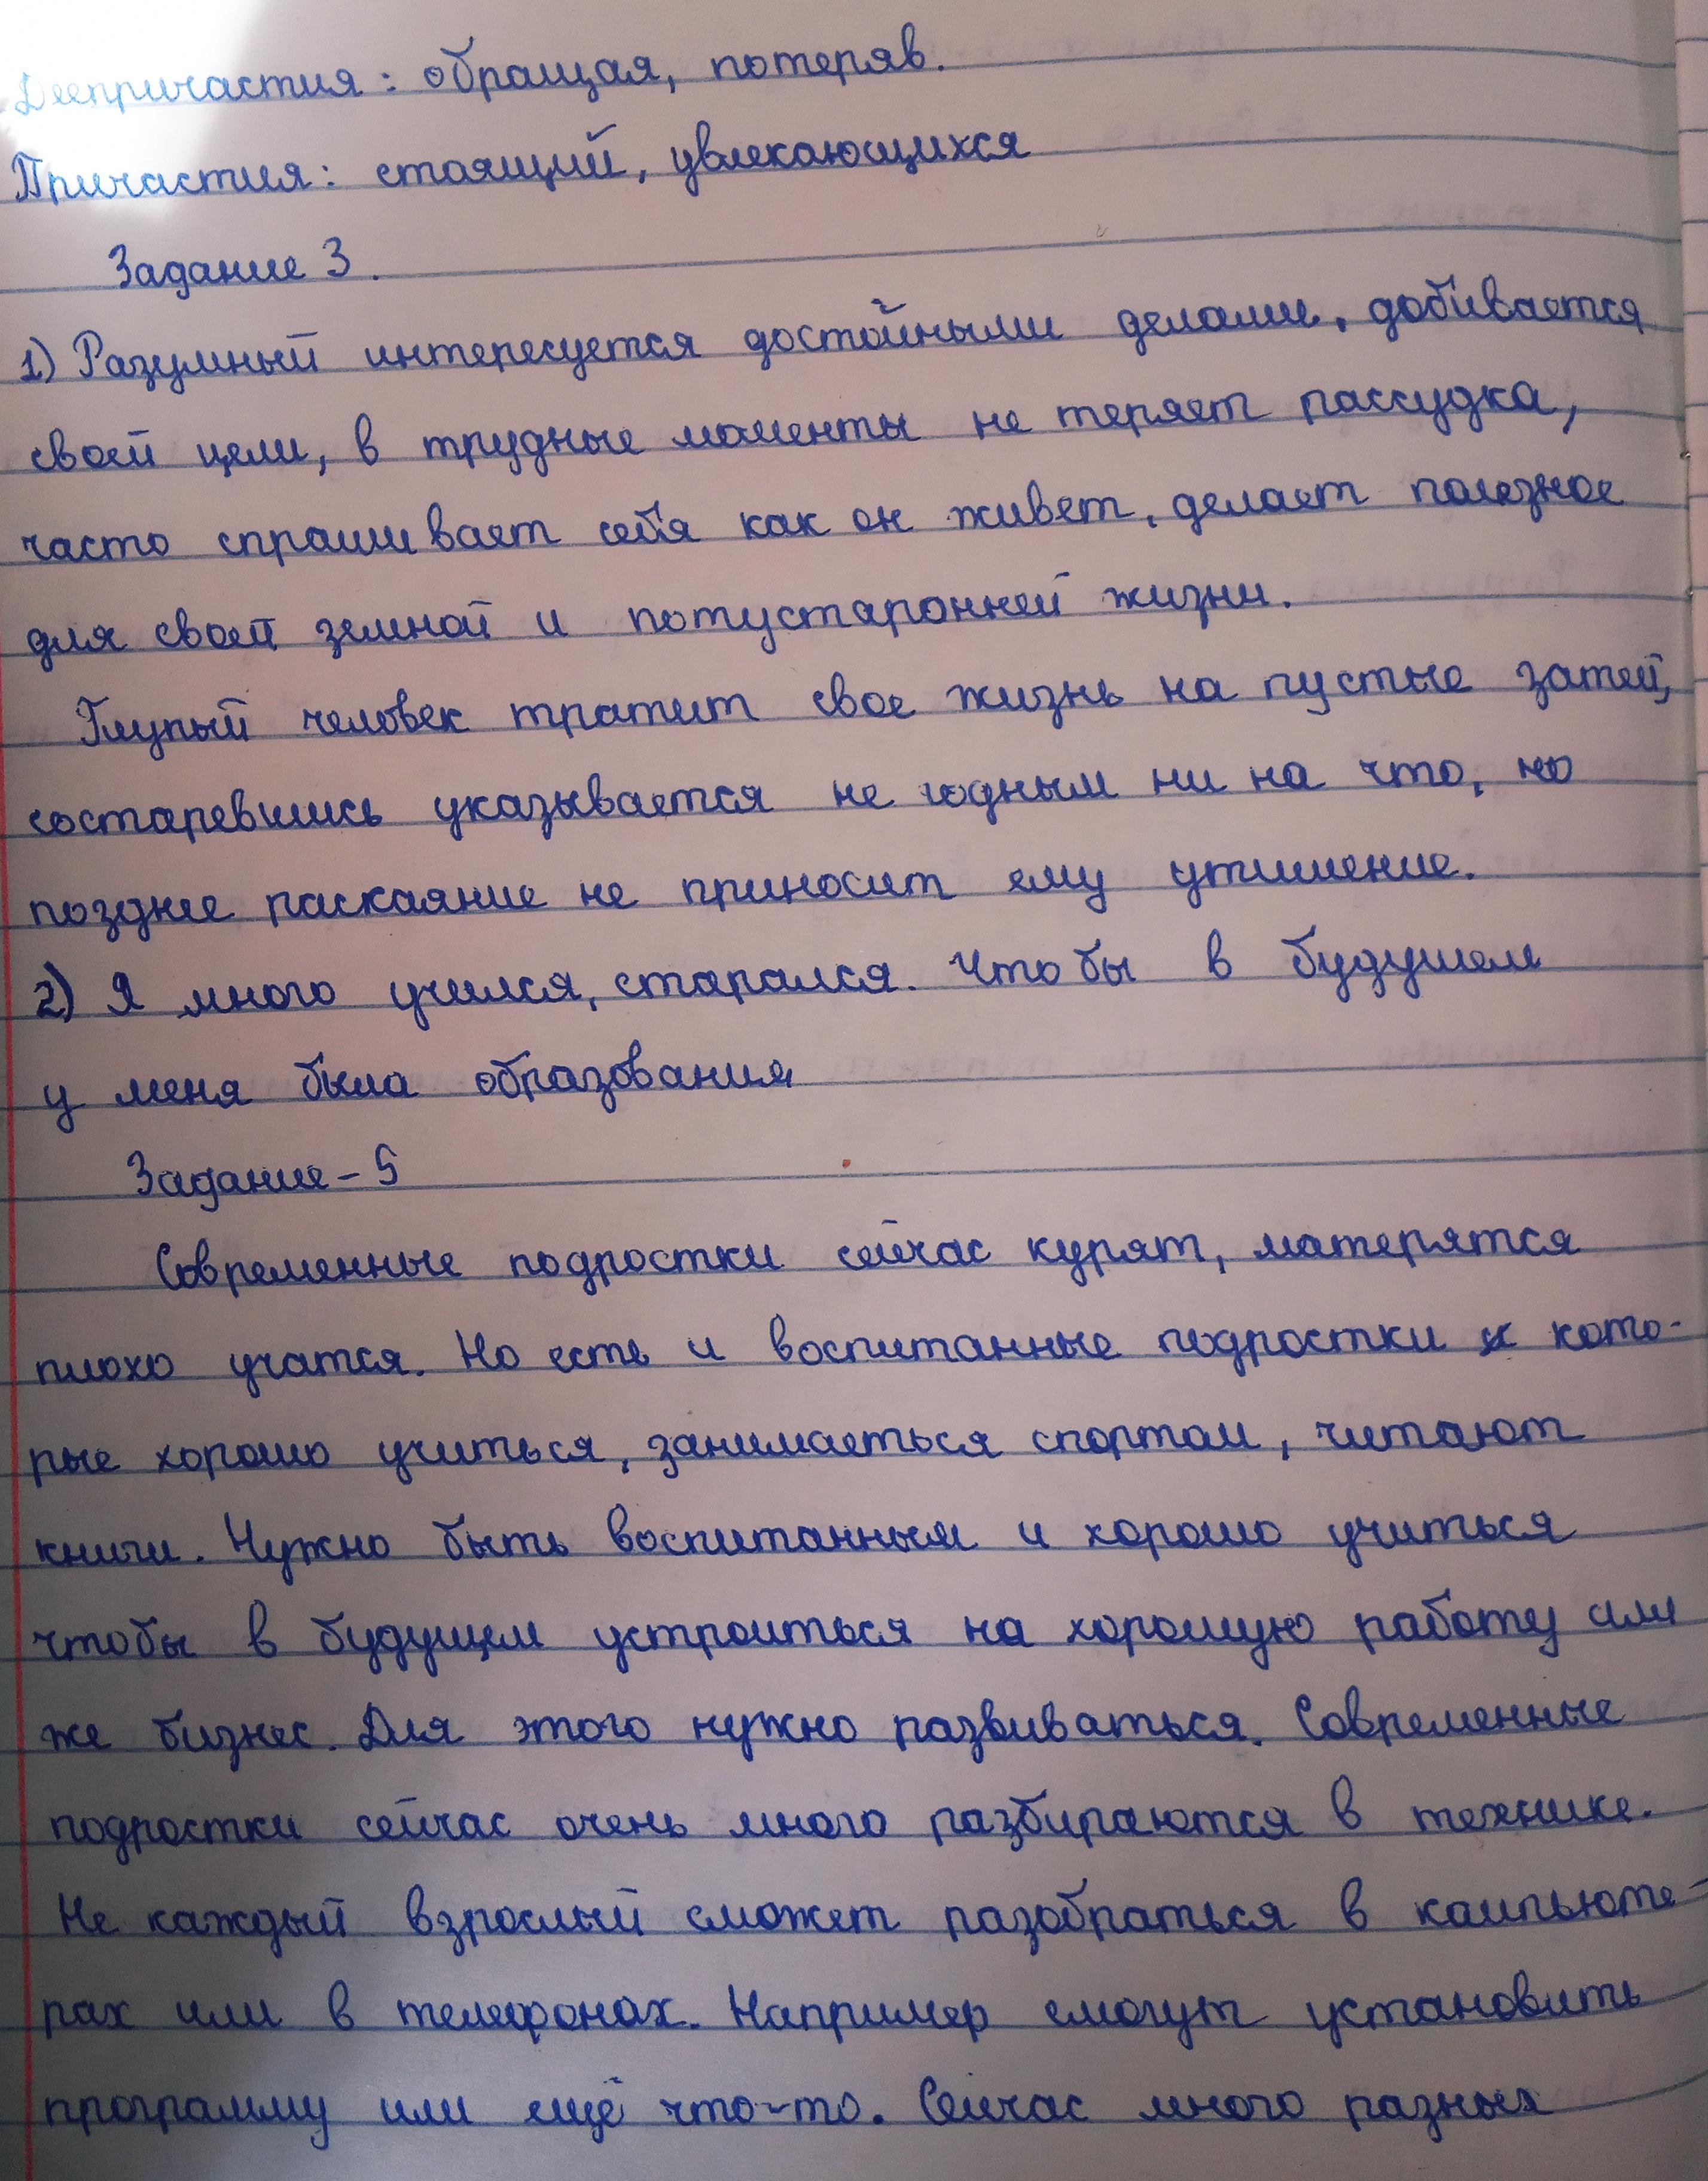 Деепричастия: обращая, потеряв.
Причастия: стоящий, увлекающихся
Задание 3.
1) Разумный интересуется достойными делами, добивается
своей цели, в трудные моменты не теряет рассудка,
часто спрашивает себя как он живет, делает полезное
для своей земной и потустаронней жизни.
Глупый человек тратит свое жизнь на пустые затей,
состаревшись указывается не годным ни на что, но
позднее раскаяние не приносит ему утишение.
2) Я много учился, старался. Что бы в будушем
у меня была образования
Задание - 5
Современные подростки сейчас курят, матерятся
плохо учатся. Но есть и воспитанные подростки кото-
рые хорошо учиться, занимаеться спортом, читают
книги. Нужно быть воспитанным и хорошо учиться
чтобы в будущем устроиться на хорошую работу или
же бизнес. Для этого нужно развиваться. Современные
подростки сейчас очень много разбираются в технике.
Не каждый взрослый сможет разобраться в компьюте-
рах или в телефонах. Например смогут установить
программу или ещё что-то. Сейчас много разных